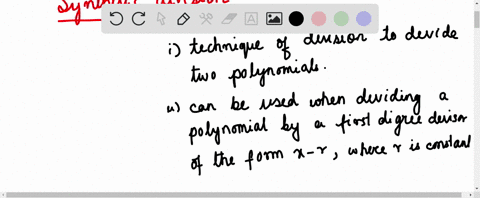 Synthetic division
i) technique of division to devide
two polynomials.
ii) can be used when deviding a
polynomial by a first degree devisor
of the form x-r, where r is constant